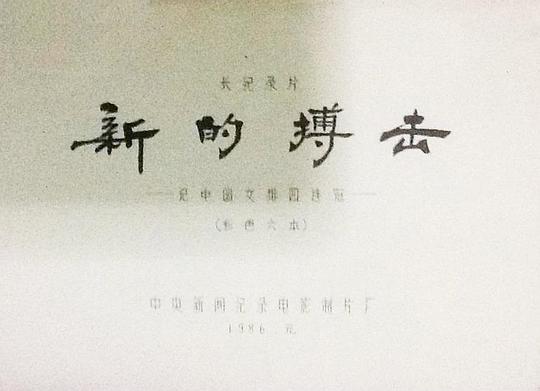 长纪录片
新的搏击
——记中国女排四连冠——
(彩色六本)
中央新闻纪录电影制片厂
1986.元